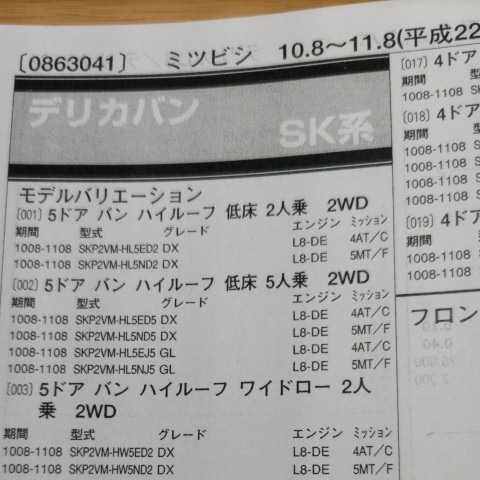 〔0863041〕 ミツビシ 10.8～11.8(平成22
デリカバン
SK系
モデルバリエーション
〔001〕5ドア バン ハイルーフ 低床 2人乗 2WD
期間 型式 グレード エンジン ミッション
1008-1108 SKP2VM-HL5ED2 DX L8-DE 4AT/C
1008-1108 SKP2VM-HL5ND2 DX L8-DE 5MT/F
〔002〕5ドア バン ハイルーフ 低床 5人乗 2WD
期間 型式 グレード エンジン ミッション
1008-1108 SKP2VM-HL5ED5 DX L8-DE 4AT/C
1008-1108 SKP2VM-HL5ND5 DX L8-DE 5MT/F
1008-1108 SKP2VM-HL5EJ5 GL L8-DE 4AT/C
1008-1108 SKP2VM-HL5NJ5 GL L8-DE 5MT/F
〔003〕5ドア バン ハイルーフ ワイドロー 2人
乗 2WD
期間 型式 グレード エンジン ミッション
1008-1108 SKP2VM-HW5ED2 DX L8-DE 4AT/C
1008-1108 SKP2VM-HW5ND2 DX L8-DE 5MT/F
〔017〕4ドア
期間 型式
1008-1108 SK
〔018〕4ドア
期間
1008-1108 SK
1008-1108 SK
1008-1108 SK
1008-1108 SK
〔019〕4ドア
期間
1008-1108 SK
1008-1108 SK
フロン